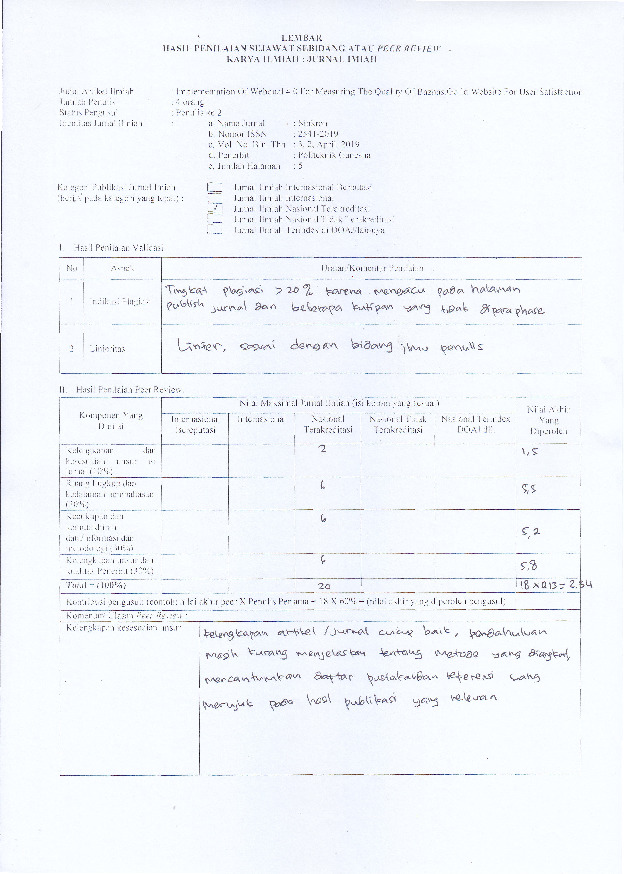 LEMBAR
HASIL PENILAIAN SEJAWAT SEBIDANG ATAU PEER REVIEW
KARYA ILMIAH : JURNAL IMIAH
Judul Artikel Ilmiah : Implementation Of Webqual 4.0 For Measuring The Quality Of Website For User Satisfaction
Jumlah Penulis : 4 orang
Status Pengusul : Penulis ke 2
Identitas Jurnal Ilmiah : a. Nama Jurnal : Sinkron
b. Nomor ISSN : 2541-2019
c. Vol. No. Bln. Thn : 3, 2, April 2019
d. Penerbit : Politeknik Ganesha
e. Jumlah Halaman : 5
Kategori Publikasi Jurnal Ilmiah
(beri √ pada kategori yang tepat) :
Jurnal Ilmiah Internasional Bereputasi
Jurnal Ilmiah Internasional
√ Jurnal Ilmiah Nasional Terakreditasi
Jurnal Ilmiah Nasional Tidak Terakreditasi
Jurnal Ilmiah Terindex di DOAJ/lainnya
I. Hasil Penilaian Validasi
No Aspek Uraian/Komentar Penilaian
1 Indikasi Plagiasi
Tingkat plagiasi >20% karena mengacu pada halaman
publish jurnal dan beberapa kutipan yang tidak diparaphase
2 Linieritas
Linier, sesuai dengan bidang ilmu penulis
II. Hasil Penilaian Peer Review
Komponen Yang Dinilai
Nilai Maksimal Jurnal Ilmiah (isi kolom yang sesuai)
Nilai Akhir Yang Diperoleh
Internasional Bereputasi
Internasional
Nasional Terakreditasi
Nasional Tidak Terakreditasi
Nasional Terindex DOAJ dll.
Kelengkapan dan kesesuaian unsur isi jurnal (10%) 2 1,5
Ruang lingkup dan kedalaman pembahasan (30%) 6 5,5
Kecukupan dan kemutahiran data/informasi dan metodologi (30%) 6 5,2
Kelengkapan unsur dan kualitas Penerbit (30%) 6 5,8
Total = (100%) 20 18 x 0,13 = 2,34
Kontribusi pengusul (contoh: nilai akhir peer X Penulis Pertama = 18 X 60% = (nilai akhir yang diperoleh pengusul)
Komentar / Ulasan Peer Review :
Kelengkapan kesesuaian unsur
kelengkapan artikel / jurnal cukup baik, pendahuluan
masih kurang menjelaskan tentang metode yang diangkat,
mencantumkan daftar pustaka dan referensi yang
merujuk pada hasil publikasi yang relevan